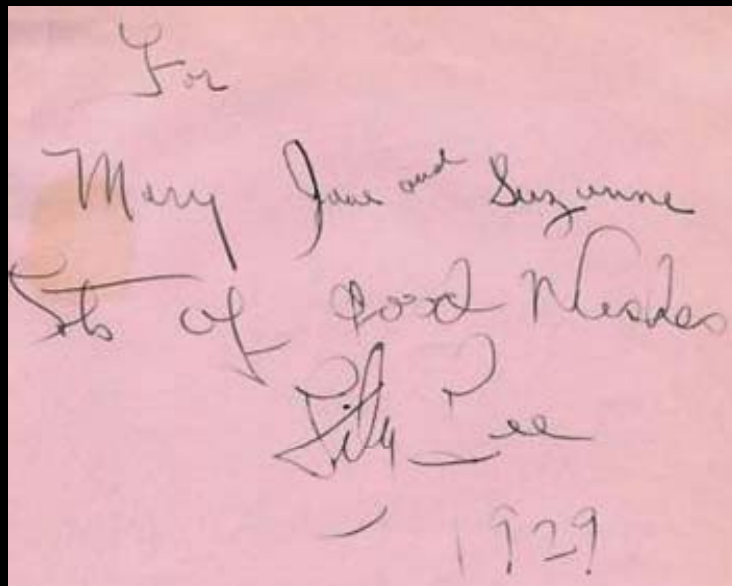 For
Mary Jane and Suzanne
of Good Wishes
Lee
1929